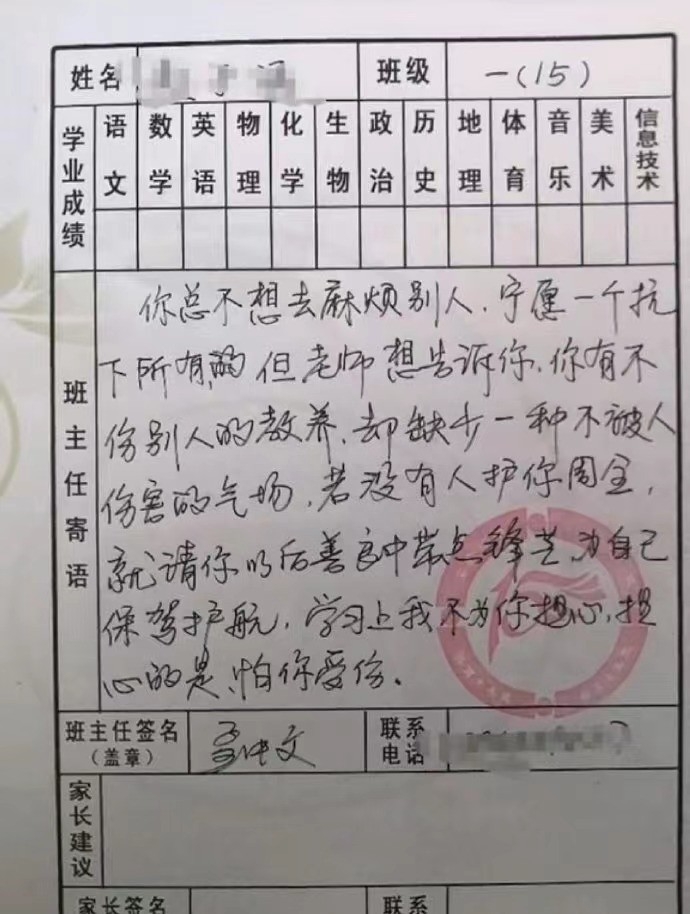 姓名
班级 一(15)
学业成绩
语文 数学 英语 物理 化学 生物 政治 历史 地理 体育 音乐 美术 信息技术
班主任寄语
你总不想去麻烦别人、宁愿一个抗
下所有的 但老师想告诉你、你有不
伤别人的教养、却缺少一种不被人
伤害的气场，若没有人护你周全，
就请你以后善良中带点锋芒，为自己
保驾护航，学习上我不为你担心，担
心的是、怕你受伤。
班主任签名
（盖章）
联系
电话
家长建议
家长签名
联系